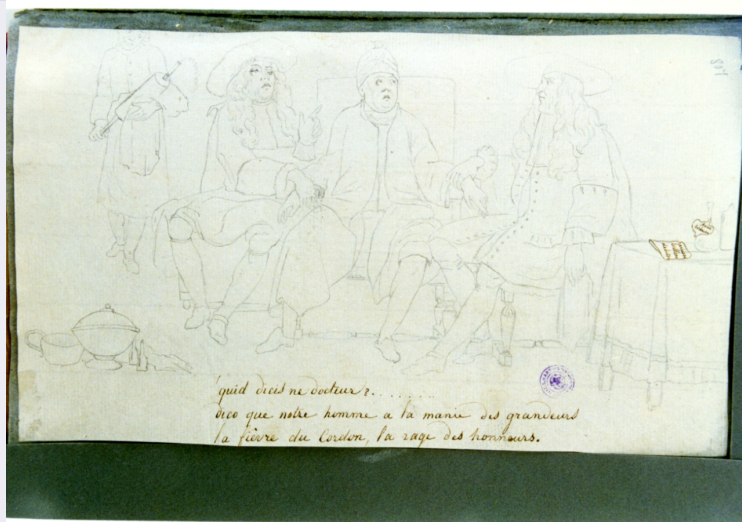 108
quid dicis ne docteur ?. . . . . . .
dico que notre homme a la manie des grandeurs
la fièvre du Cordon, la rage des honneurs.